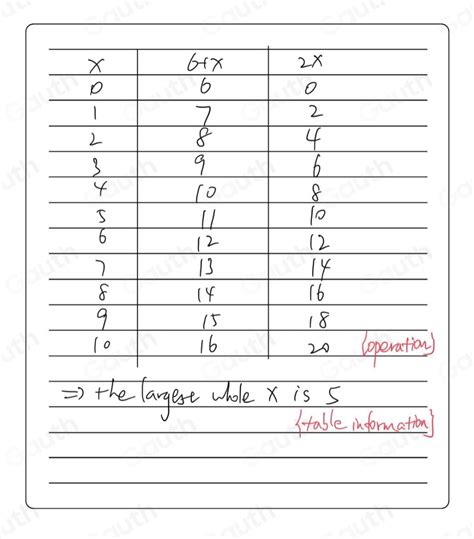 x 6+x 2x
0 6 0
1 7 2
2 8 4
3 9 6
4 10 8
5 11 10
6 12 12
7 13 14
8 14 16
9 15 18
10 16 20 {operation}
⇒ the largest whole x is 5
{table information}
Gauth